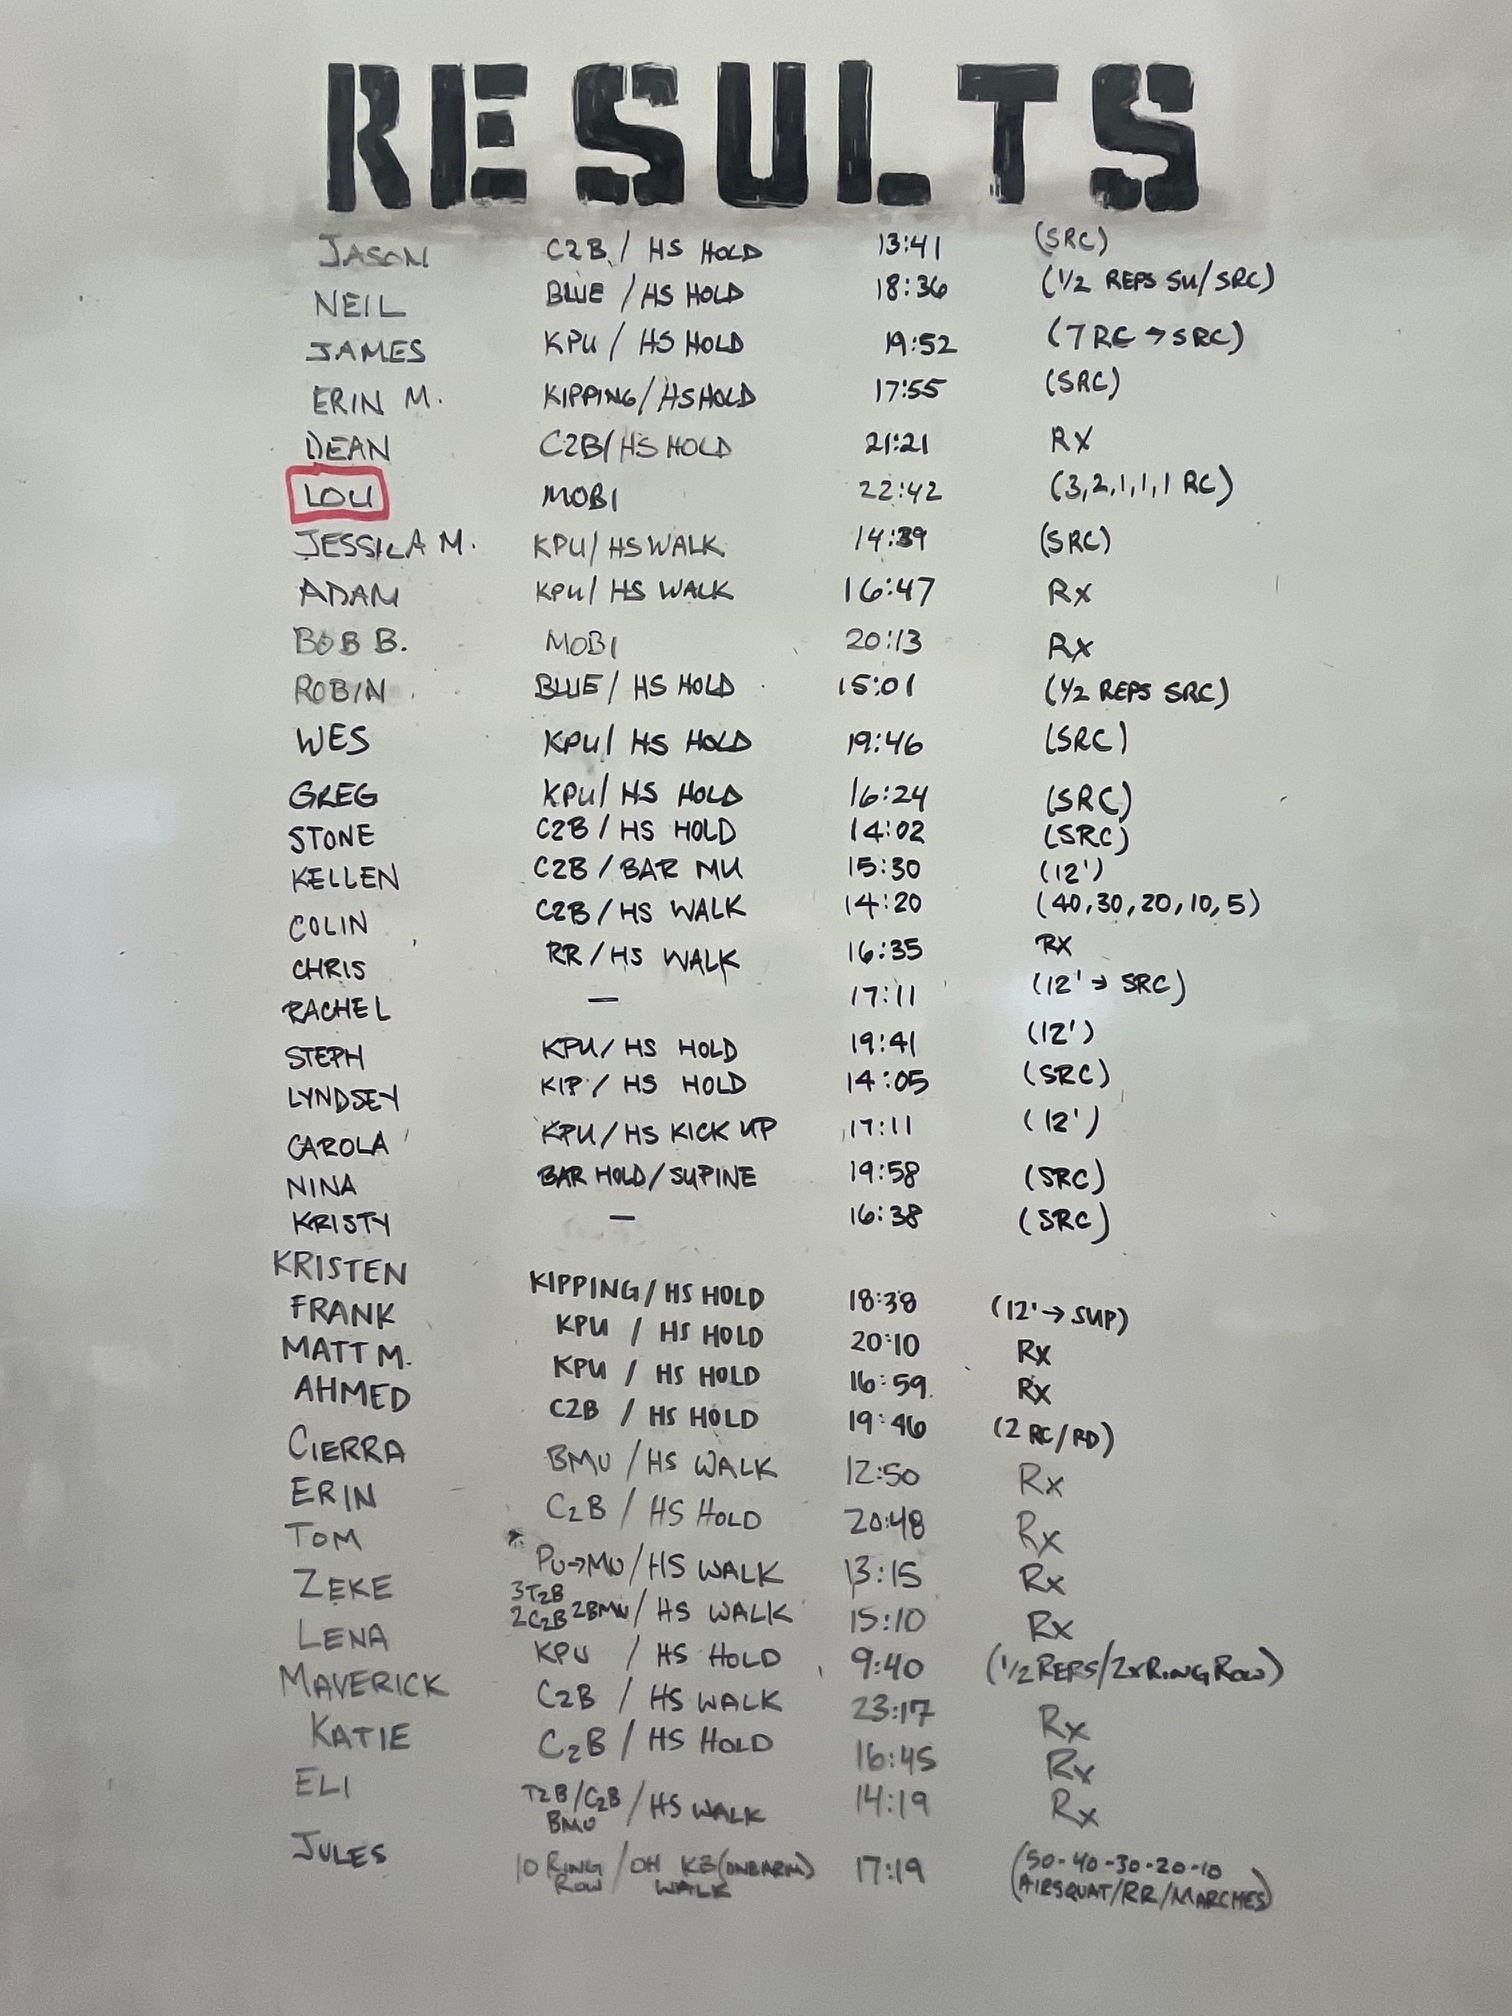 RESULTS
JASON C2B / HS HOLD 13:41 (SRC)
NEIL BLUE / HS HOLD 18:36 (1/2 REPS SU/SRC)
JAMES KPU / HS HOLD 19:52 (7 RC → SRC)
ERIN M. KIPPING / HS HOLD 17:55 (SRC)
DEAN C2B / HS HOLD 21:21 RX
LOU MOBI 22:42 (3,2,1,1,1 RC)
JESSICA M. KPU / HS WALK 14:39 (SRC)
ADAM KPU / HS WALK 16:47 Rx
BOB B. MOBI 20:13 Rx
ROBIN BLUE / HS HOLD 15:01 (1/2 REPS SRC)
WES KPU / HS HOLD 19:46 (SRC)
GREG KPU / HS HOLD 16:24 (SRC)
STONE C2B / HS HOLD 14:02 (SRC)
KELLEN C2B / BAR MU 15:30 (12')
COLIN C2B / HS WALK 14:20 (40,30,20,10,5)
CHRIS RR / HS WALK 16:35 RX
RACHEL — 17:11 (12' → SRC)
STEPH KPU / HS HOLD 19:41 (12')
LYNDSEY KIP / HS HOLD 14:05 (SRC)
CAROLA KPU / HS KICK UP 17:11 (12')
NINA BAR HOLD / SUPINE 19:58 (SRC)
KRISTY — 16:38 (SRC)
KRISTEN KIPPING / HS HOLD 18:38 (12' → SUP)
FRANK KPU / HS HOLD 20:10 Rx
MATT M. KPU / HS HOLD 16:59 Rx
AHMED C2B / HS HOLD 19:46 (2 RC/RD)
CIERRA BMU / HS WALK 12:50 Rx
ERIN C2B / HS HOLD 20:48 Rx
TOM PU→MU / HS WALK 13:15 Rx
ZEKE 3T2B 2C2B 2BMU / HS WALK 15:10 Rx
LENA KPU / HS HOLD 9:40 (1/2 REPS / 2x RING ROW)
MAVERICK C2B / HS WALK 23:17 Rx
KATIE C2B / HS HOLD 16:45 Rx
ELI T2B / C2B / BMU / HS WALK 14:19 Rx
JULES 10 RING ROW / OH KB (ONE ARM) WALK 17:19 (50-40-30-20-10 AIRSQUAT/RR/MARCHES)